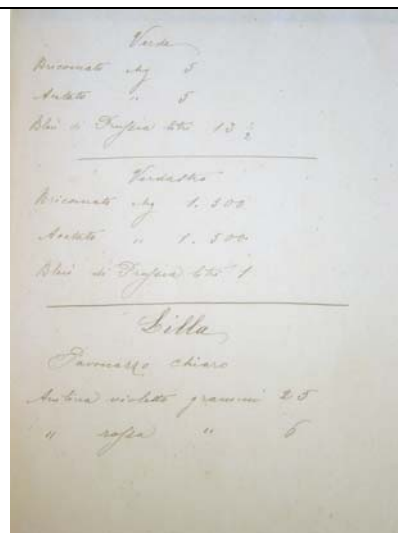 Verde
Bricomato Kg 5
Acetato " 5
Bleu di Prussia litri 13 1/2
Verdastro
Bricomato Kg 1.500
Acetato " 1.500
Bleu di Prussia litri 1
Lilla
Pavonazzo chiaro
Anilina violetta grammi 25
" rossa " 6